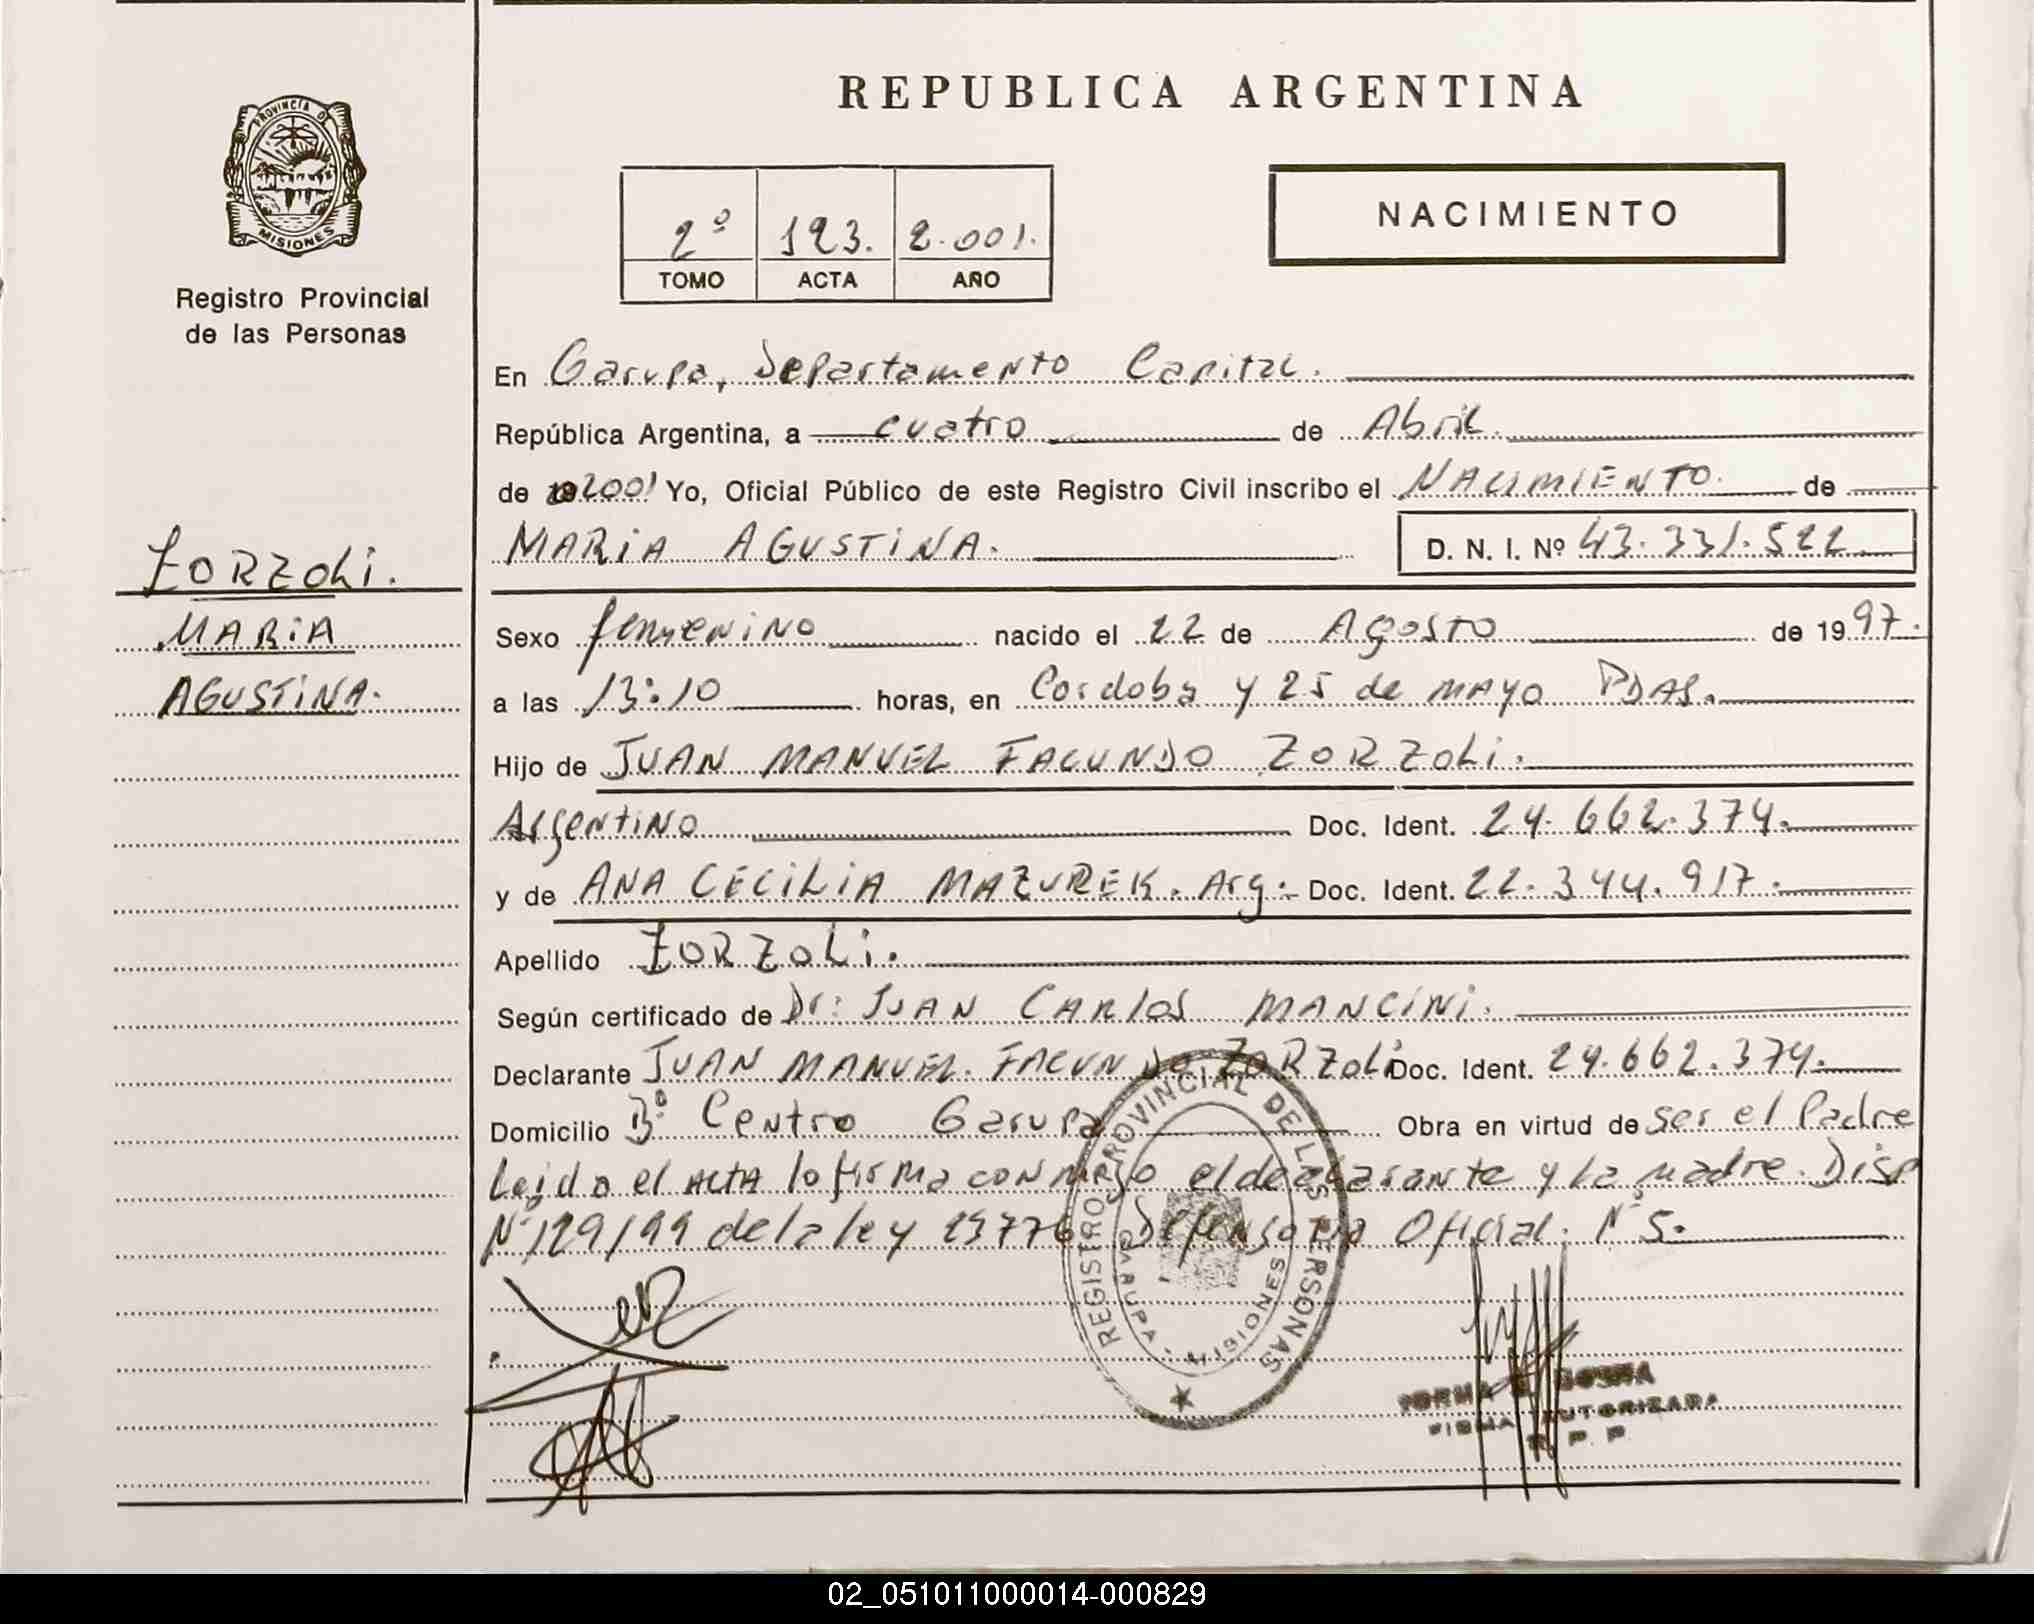 REPUBLICA ARGENTINA
PROVINCIA DE
MISIONES
Registro Provincial
de las Personas
2º 123. 2.001.
TOMO ACTA AÑO
NACIMIENTO
En Garupa, Departamento Capital.
República Argentina, a cuatro de Abril.
de 2001 Yo, Oficial Público de este Registro Civil inscribo el NACIMIENTO. de
MARIA AGUSTINA. D. N. I. Nº 43.331.522
ZORZOLi.
MARiA
AGUSTiNA.
Sexo femenino nacido el 22 de Agosto de 1997.
a las 13:10 horas, en Cordoba y 25 de mayo PDAS.
Hijo de JUAN MANUEL FACUNDO ZORZOLi.
Argentino Doc. Ident. 24.662.374.
y de ANA CECILIA MAZUREK. Arg. Doc. Ident. 22.344.917.
Apellido ZORZOLi.
Según certificado de Dr: JUAN CARLOS MANCINI.
Declarante JUAN MANUEL. FACUNDO ZORZOLi Doc. Ident. 24.662.374.
Domicilio Bº Centro Garupa Obra en virtud de ser el Padre
Leido el ACTA lo firma conmigo el declarante y la madre. Disp
Nº 129/99 de la ley 23776 Defensoria Oficial. Nº 5.
REGISTRO PROVINCIAL DE LAS PERSONAS
GARUPA - MISIONES
FIRMA AUTORIZADA
R. P. P.
02_051011000014-000829